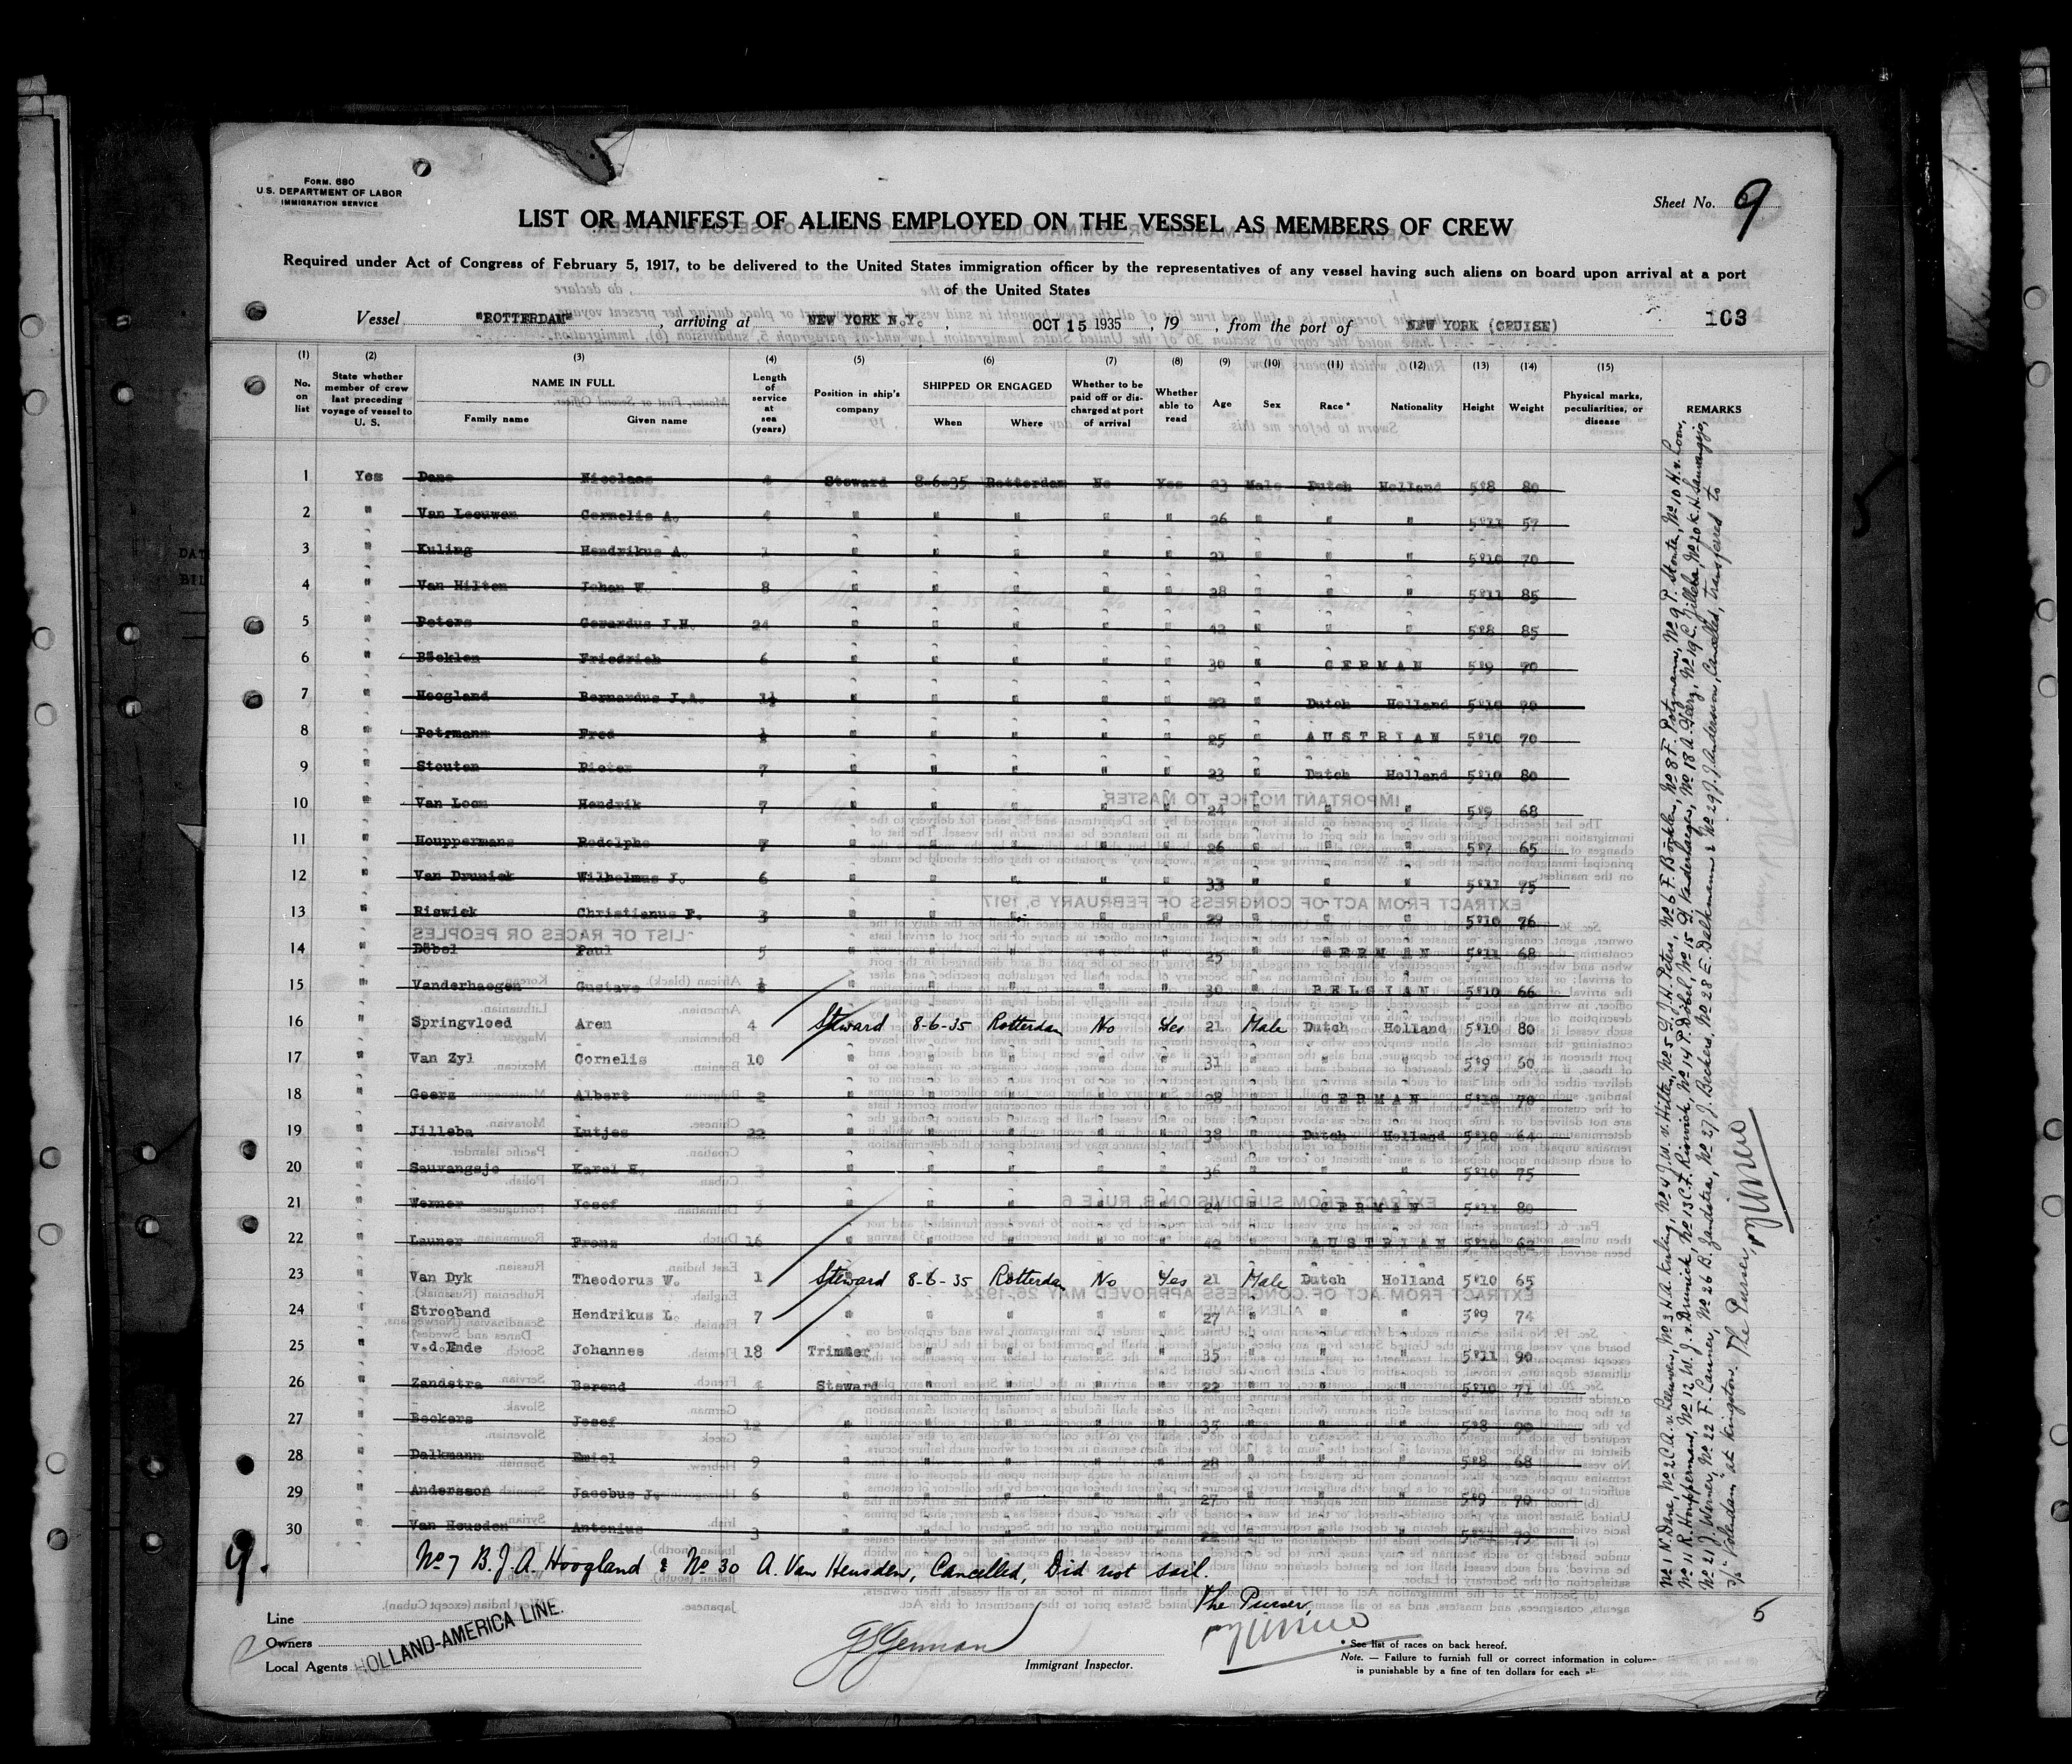 FORM. 680
U.S. DEPARTMENT OF LABOR
IMMIGRATION SERVICE
Sheet No. 9
LIST OR MANIFEST OF ALIENS EMPLOYED ON THE VESSEL AS MEMBERS OF CREW
Required under Act of Congress of February 5, 1917, to be delivered to the United States immigration officer by the representatives of any vessel having such aliens on board upon arrival at a port
of the United States
Vessel "ROTTERDAM", arriving at NEW YORK N.Y., OCT 15 1935, 19 , from the port of NEW YORK (CRUISE) 103
(1) (2) (3) (4) (5) (6) (7) (8) (9) (10) (11) (12) (13) (14) (15)
No. on list State whether member of crew last preceding voyage of vessel to U. S. NAME IN FULL Family name Given name Length of service at sea (years) Position in ship's company SHIPPED OR ENGAGED When Where Whether to be paid off or discharged at port of arrival Whether able to read Age Sex Race* Nationality Height Weight Physical marks, peculiarities, or disease REMARKS
1 Yes Dane Nicolaas 4 Steward 8-6-35 Rotterdam No Yes 23 Male Dutch Holland 5"8 80
2 " Van Leeuwen Cornelis A. 4 " " " " " 26 " " " 5"11 57
3 " Kuling Hendrikus A. 1 " " " " " 21 " " " 5"10 70
4 " Van Hilten Johan W. 8 " " " " " 28 " " " 5"11 85
5 " Peters Gerardus J.H. 24 " " " " " 42 " " " 5"8 85
6 " Böcklen Friedrich 6 " " " " " 30 " GERMAN 5"9 70
7 " Hoogland Bernardus J.A. 1½ " " " " " 22 " Dutch Holland 5"10 70
8 " Potzmann Fred ½ " " " " " 25 " AUSTRIAN 5"10 70
9 " Stouten Pieter 7 " " " " " 23 " Dutch Holland 5"10 80
10 " Van Loon Hendrik 7 " " " " " 24 " " " 5"9 68
11 " Houppermans Rodolphe 7 " " " " " 26 " " " 5"7 65
12 " Van Drunick Wilhelmus J. 6 " " " " " 33 " " " 5"11 75
13 " Riswick Christianus F. 3 " " " " " 29 " " " 5"10 76
14 " Döbel Paul 5 " " " " " 25 " GERMAN 5"11 68
15 " Vanderhaegen Gustave ½ " " " " " 30 " BELGIAN 5"10 66
16 " Springvloed Aren 4 Steward 8-6-35 Rotterdam No Yes 21 Male Dutch Holland 5"10 80
17 " Van Zyl Cornelis 10 " " " " " 31 " " " 5"9 60
18 " Geerz Albert 2 " " " " " 28 " GERMAN 5"10 70
19 " Jilleba Lutjes 22 " " " " " 38 " Dutch Holland 5"10 64
20 " Sauvangsjo Karel H. 3 " " " " " 36 " " " 5"10 75
21 " Werner Josef " " " " " 24 " GERMAN 5"11 80
22 " Launer Franz 16 " " " " " 42 " AUSTRIAN 5"10 62
23 " Van Dyk Theodorus W. 1 Steward 8-6-35 Rotterdam No Yes 21 Male Dutch Holland 5"10 65
24 " Strooband Hendrikus L. 7 " " " " " 27 " " " 5"9 74
25 " v.d.Ende Johannes 18 Trimmer " " " " 35 " " " 5"11 90
26 " Zandstra Berend 4 Steward " " " " 22 " " " 5"10 71
27 " Beckers Josef 12 " " " " " 35 " " " 5"8 90
28 " Dalkmann Emiel 9 " " " " " 28 " " " 5"8 68
29 " Andersson Jacobus J. 6 " " " " " 27 " " " 5"9 70
30 " Van Heusden Antonius 3 " " " " " 22 " " " 79
No 7 B.J.A. Hoogland & No 30 A. Van Heusden, Cancelled, Did not sail.
The Purser,
9.
No 1 N. Dane, No 2 C.A. v. Leeuwen, No 3 H.A. Kuling, No 4 J.W. v. Hilten, No 5 G.J.H. Peters, No 6 F. Böcklen, No 8 F. Potzmann, No 9 P. Stouten, No 10 H. v. Loon,
No 11 R. Houppermans, No 12 W.J. v. Drunick, No 13 C.F. Riswick, No 14 P. Döbel, No 15 G. Vanderhaegen, No 18 A. Geerz, No 19 L. Jilleba, No 20 K.H. Sauvangsjo,
No 21 J. Werner, No 22 F. Launer, No 26 B. Zandstra, No 27 J. Beckers, No 28 E. Dalkmann & No 29 J.J. Andersson, Cancelled, transferred to
s/s "Volendam" at Kingston. The Purser,
5
Line
Owners
Local Agents HOLLAND-AMERICA LINE.
Immigrant Inspector.
* See list of races on back hereof.
Note. — Failure to furnish full or correct information in
is punishable by a fine of ten dollars for each